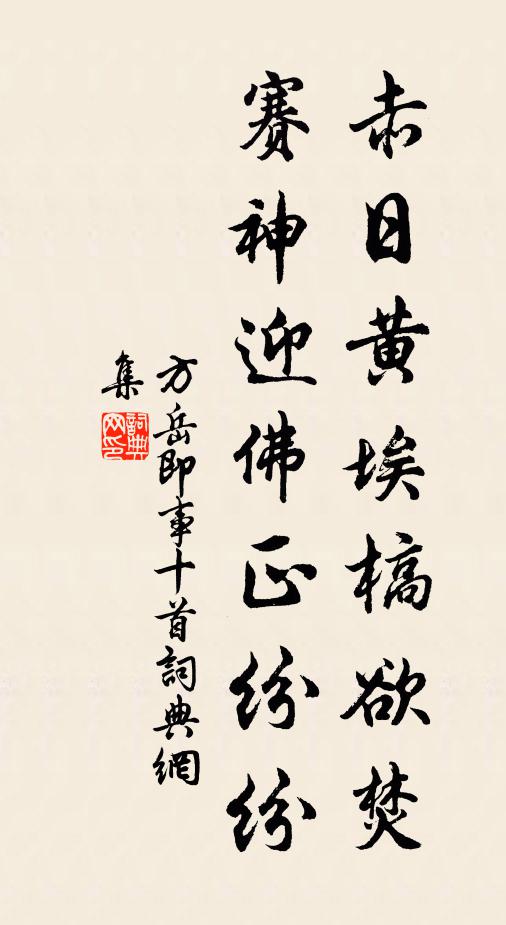 赤日黄埃槁欲焚
賽神迎佛正紛紛
方岳即事十首詞典網
集
詞典
网印